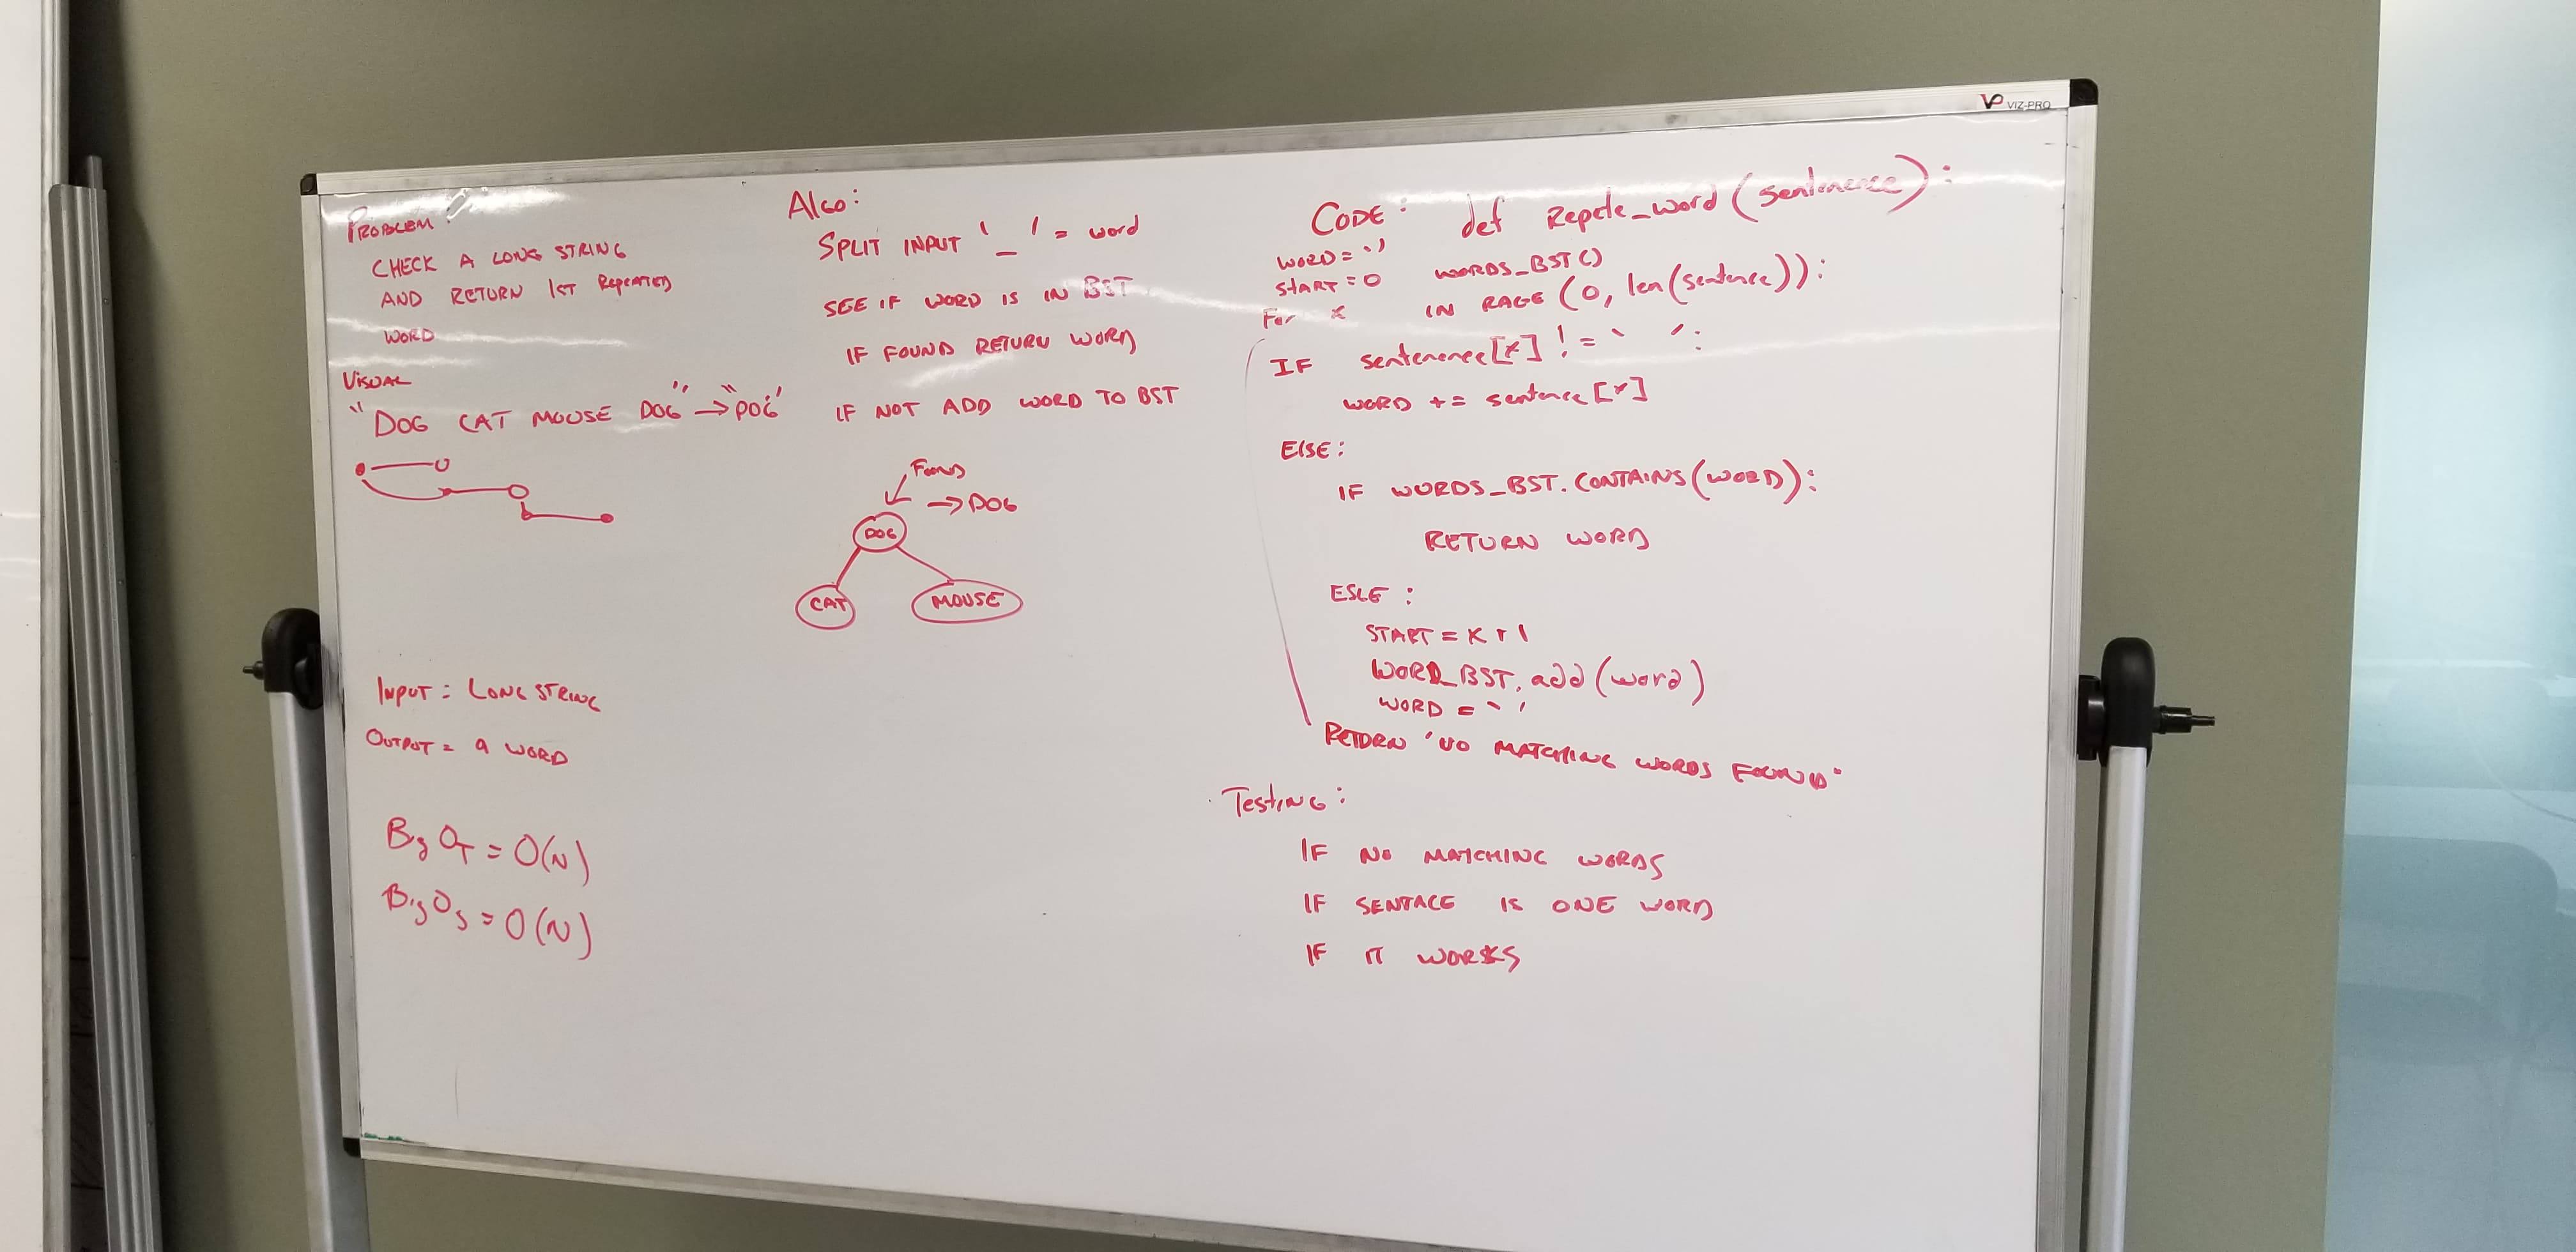 PROBLEM:
CHECK A LONG STRING
AND RETURN 1ST REPEATED
WORD
VISUAL
"DOG CAT MOUSE DOG" → "DOG"
INPUT = LONG STRING
OUTPUT = a WORD
Big OT = O(N)
Big Os = O(N)
ALGO:
SPLIT INPUT '_' = word
SEE IF WORD IS IN BST
IF FOUND RETURN WORD
IF NOT ADD WORD TO BST
FOUND
→ DOG
DOG
CAT
MOUSE
VP VIZ-PRO
CODE: def Repete_word(sentenence):
WORD = ''
START = 0 WORDS_BST()
For x IN RAGE (0, len(sentence)):
IF sentenence[x] != ' ':
WORD += sentence[x]
ElSE:
IF WORDS_BST.CONTAINS(WORD):
RETURN WORD
ESLE:
START = x + 1
WORD_BST.add(word)
WORD = ''
RETURN 'NO MATCHING WORDS FOUND'
Testing:
IF NO MATCHING WORDS
IF SENTACE IS ONE WORD
IF IT WORKS